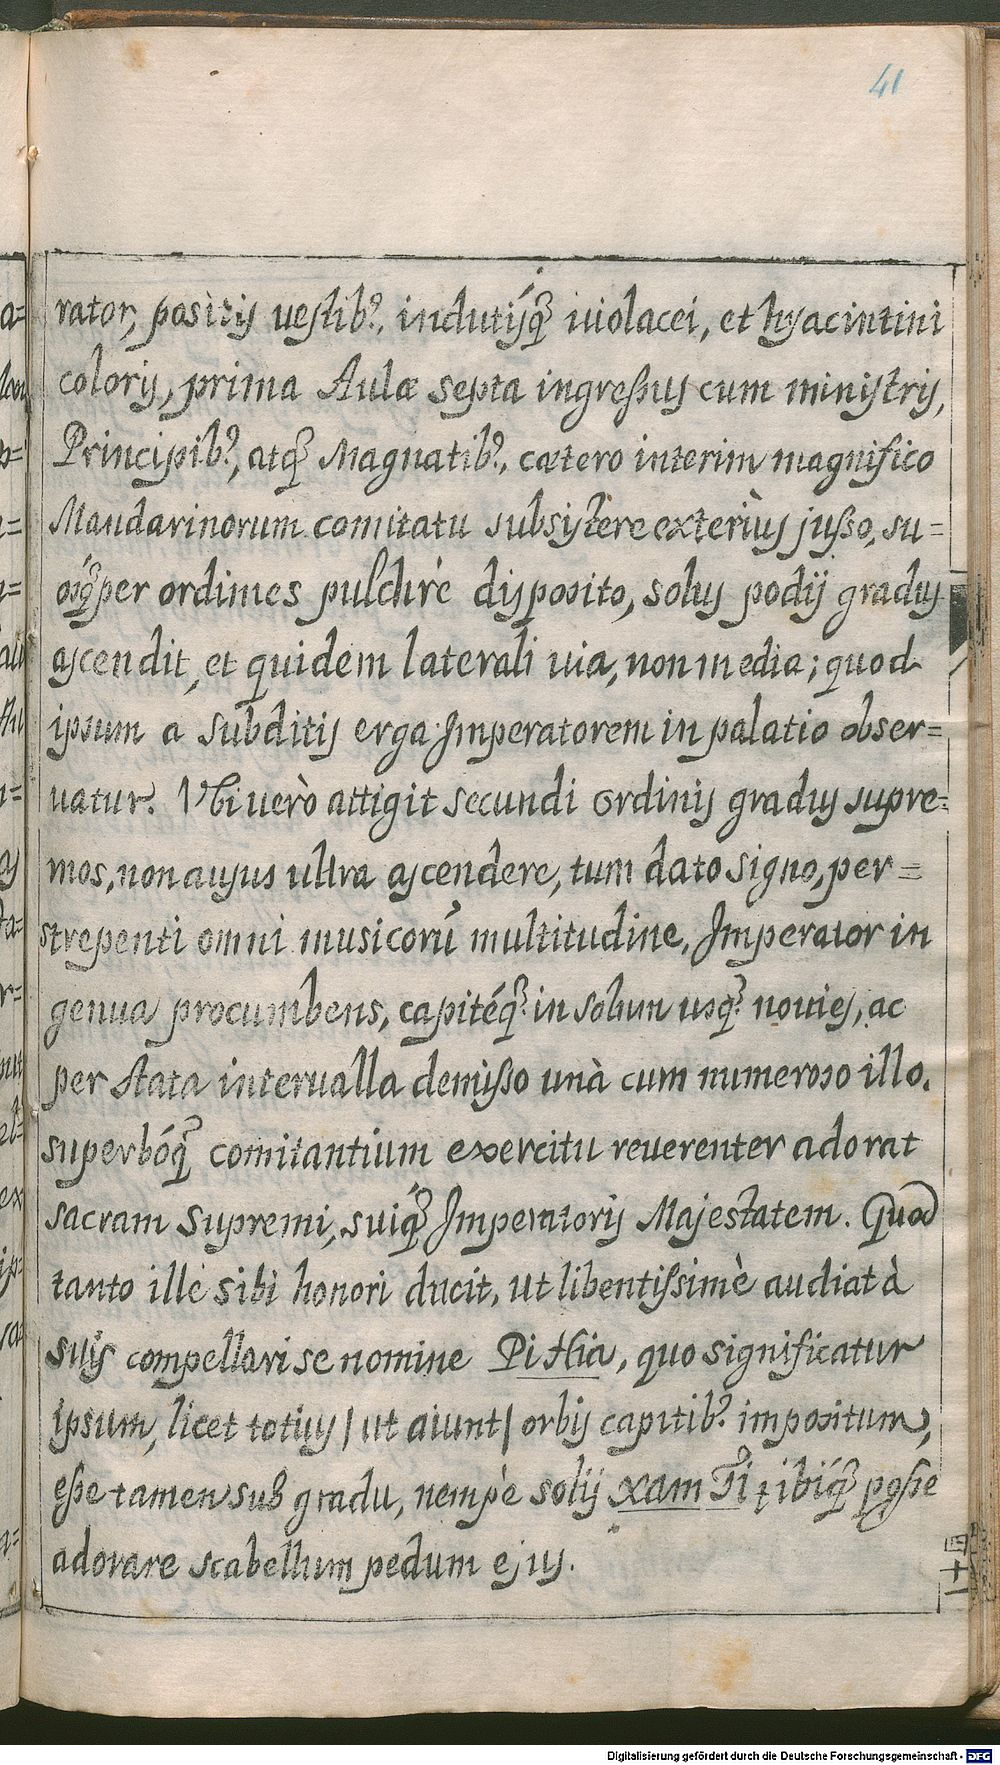 41
rator, positis vestib9, indutisq3 uiolacei, et hyacintini
coloris, prima Aulæ septa ingressus cum ministris,
Principib9, atq3 Magnatib9, cætero interim magnifico
Mandarinorum comitatu subsistere exteriùs jusso, su=
osq3 per ordines pulchrè disposito, solus podij gradus
ascendit, et quidem laterali uia, non media; quod
ipsum a subditis erga Imperatorem in palatio obser=
uatur. Vbi uerò attigit secundi ordinis gradus supre=
mos, non ausus ultra ascendere, tum dato signo, per=
strepenti omni musicorũ multitudine, Imperator in
genua procumbens, capitéq3 in solum usq3 nouies, ac
per stata interualla demisso unà cum numeroso illo.
superbóq3 comitantium exercitu reuerenter adorat
sacram Supremi, suiq3 Imperatoris Majestatem. Quod
tanto ille sibi honori ducit, ut libentissimè audiat à
suis compellari se nomine Pi Hia, quo significatur
ipsum, licet totius | ut aiunt | orbis capitib9 impositum,
esse tamen sub gradu, nempè solij xam Ti; ibiq3 posse
adorare scabellum pedum ejus.
四十一
Digitalisierung gefördert durch die Deutsche Forschungsgemeinschaft - DFG